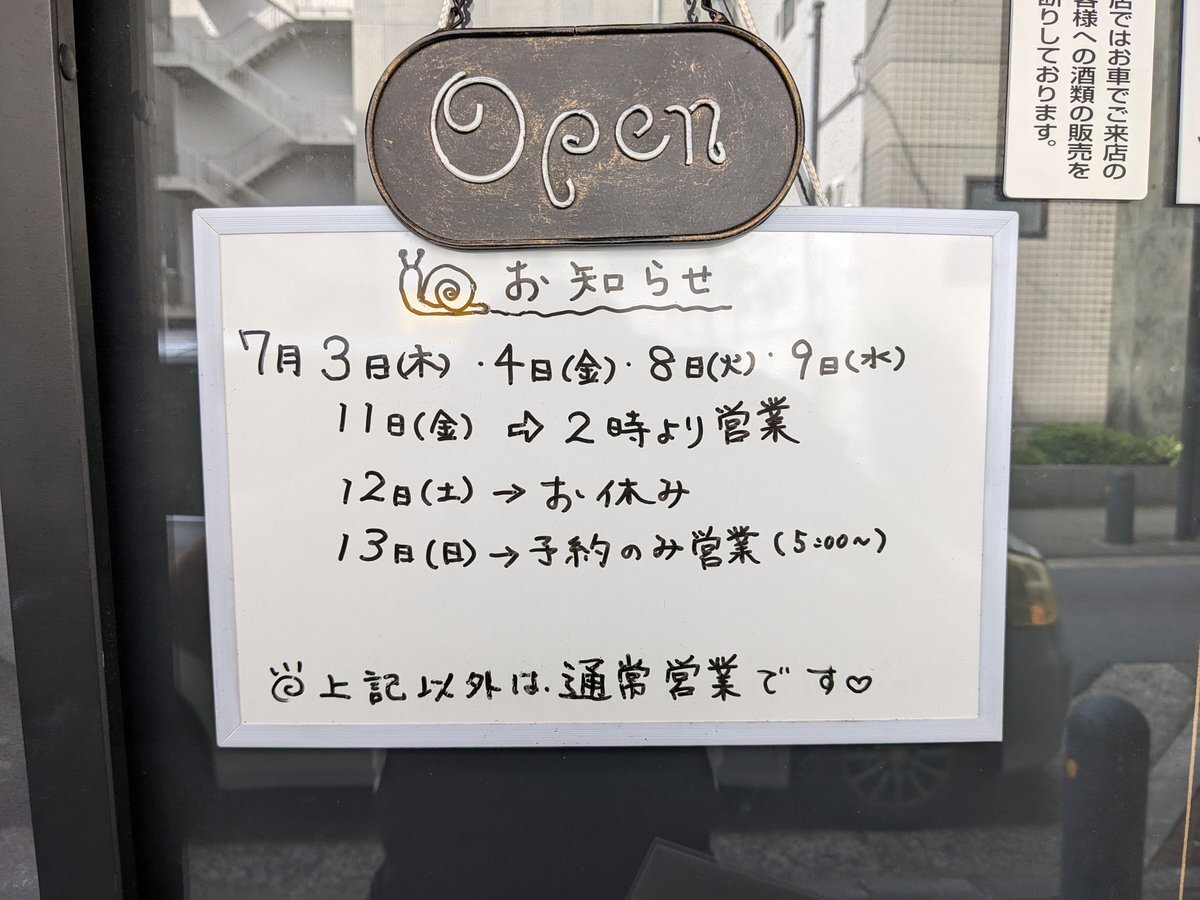 Open
お知らせ
7月3日(木)・4日(金)・8日(火)・9日(水)
11日(金)⇨2時より営業
12日(土)→お休み
13日(日)→予約のみ営業(5:00~)
上記以外は、通常営業です♡
店ではお車でご来店の
客様への酒類の販売を
断りしております。